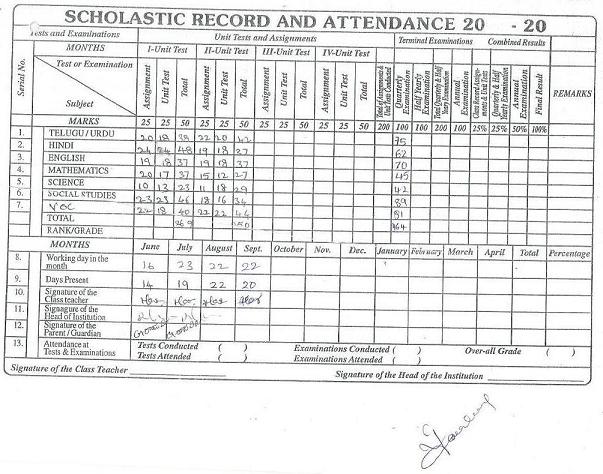 SCHOLASTIC RECORD AND ATTENDANCE 20 - 20
Tests and Examinations Unit Tests and Assignments Terminal Examinations Combined Results
MONTHS I-Unit Test II-Unit Test III-Unit Test IV-Unit Test
Serial No. Test or Examination Subject Assignment Unit Test Total Assignment Unit Test Total Assignment Unit Test Total Assignment Unit Test Total Total of Assignments & Unit Tests Conducted Quarterly Examination Half Yearly Examination Total Quarterly & Half Yearly Examination Annual Examination Class Record Assignments & Unit Tests Quarterly & Half Yearly Examination Annual Examination Final Result REMARKS
MARKS 25 25 50 25 25 50 25 25 50 25 25 50 200 100 100 200 100 25% 25% 50% 100%
1. TELUGU / URDU 20 18 39 22 20 42 75
2. HINDI 24 24 48 19 18 37 62
3. ENGLISH 19 18 37 19 18 37 70
4. MATHEMATICS 20 17 37 15 12 27 45
5. SCIENCE 10 13 23 11 18 29 42
6. SOCIAL STUDIES 23 23 46 18 16 34 89
7. VOC 22 18 40 22 22 44 81
TOTAL 269 250 464
RANK/GRADE
MONTHS June July August Sept. October Nov. Dec. January February March April Total Percentage
8. Working day in the month 16 23 22 22
9. Days Present 14 19 22 20
10. Signature of the Class teacher
11. Signagure of the Head of Institution
12. Signature of the Parent / Guardian
13. Attendance at Tests & Examinations Tests Conducted ( ) Examinations Conducted ( ) Over-all Grade ( )
Tests Attended ( ) Examinations Attended ( )
Signature of the Class Teacher Signature of the Head of the Institution